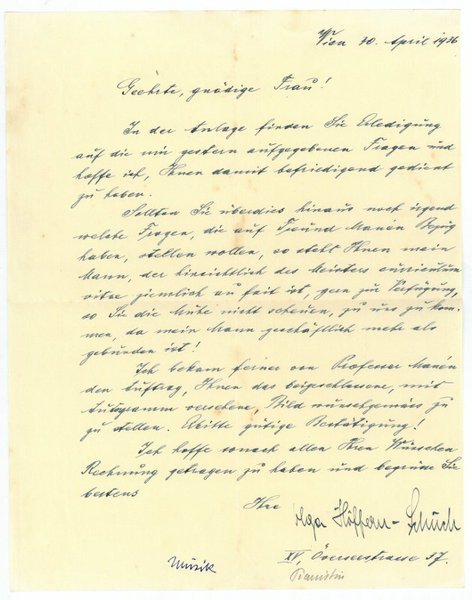 Wien 30. April 1936
Geehrte, gnädige Frau!
In der Anlage finden Sie Erledigung
auf die mir gestern aufgegebenen Fragen und
hoffe ich, Ihnen damit befriedigend gedient
zu haben.
Sollten Sie überdies hinaus noch irgend
welche Fragen, die auf Freund Manén Bezug
haben, stellen wollen, so steht Ihnen mein
Mann, der hinsichtlich des Meisters curriculum
vitae ziemlich au fait ist, gern zur Verfügung,
so Sie die Mühe nicht scheuen, zu uns zu kom-
men, da mein Mann geschäftlich mehr als
gebunden ist!
Ich bekam ferner von Professor Manén
den Auftrag, Ihnen das beigeschlossene, mit
Autogramm versehene, Bild wunschgemäss zu
zu stellen. Erbitte gütige Bestätigung!
Ich hoffe sonach allen Ihren Wünschen
Rechnung getragen zu haben und begrüsse Sie
bestens
Ihre
Olga Höffern-Schück
XV, Överseestrasse 57.
Musik
Pianistin